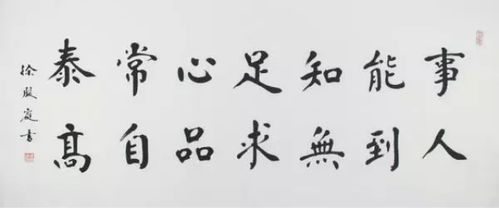 事能知足心常泰
人到無求品自高
徐 書